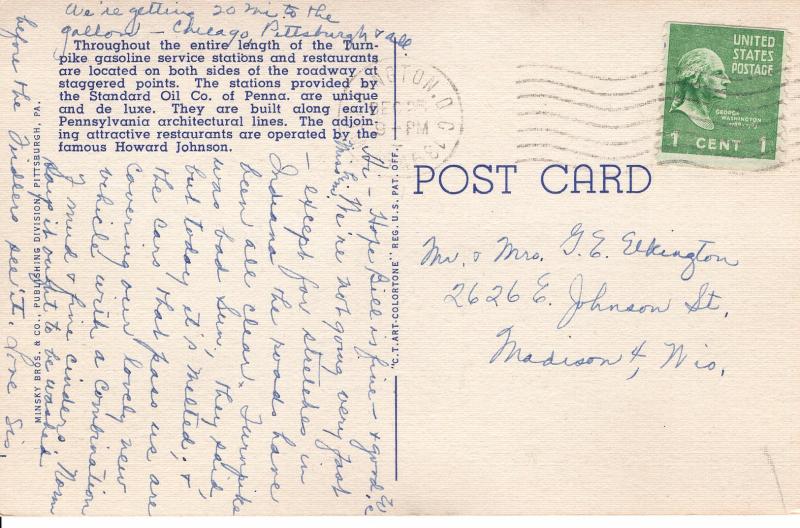 We're getting 20 mi. to the
gallon – Chicago Pittsburgh & all
Throughout the entire length of the Turn-
pike gasoline service stations and restaurants
are located on both sides of the roadway at
staggered points. The stations provided by
the Standard Oil Co. of Penna. are unique
and de luxe. They are built along early
Pennsylvania architectural lines. The adjoin-
ing attractive restaurants are operated by the
famous Howard Johnson.
Hi – Hope Bill is fine – & good
We're not going very fast
– except for stretches in
Indiana the roads have
been all clear. Turnpike
was bad Sun., they said,
but today it's melted, &
the cars that pass us are
covering our lovely new
vehicle with a combination
of mud & fine cinders. Norm
says it ought to be washed
before the Fidlers see it. Love Sis.
MINSKY BROS. & CO., PUBLISHING DIVISION, PITTSBURGH, PA.
"C.T. ART-COLORTONE" REG. U.S. PAT. OFF.
POST CARD
UNITED
STATES
POSTAGE
GEORGE
WASHINGTON
1 CENT 1
Mr. & Mrs. G. E. Elkington
2626 E. Johnson St.
Madison 4, Wis.